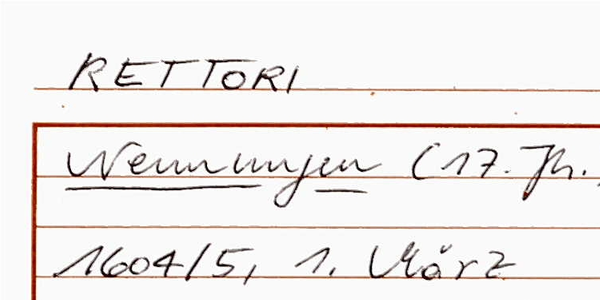 RETTORI
Nennungen (17. Jh.
1604/5, 1. März